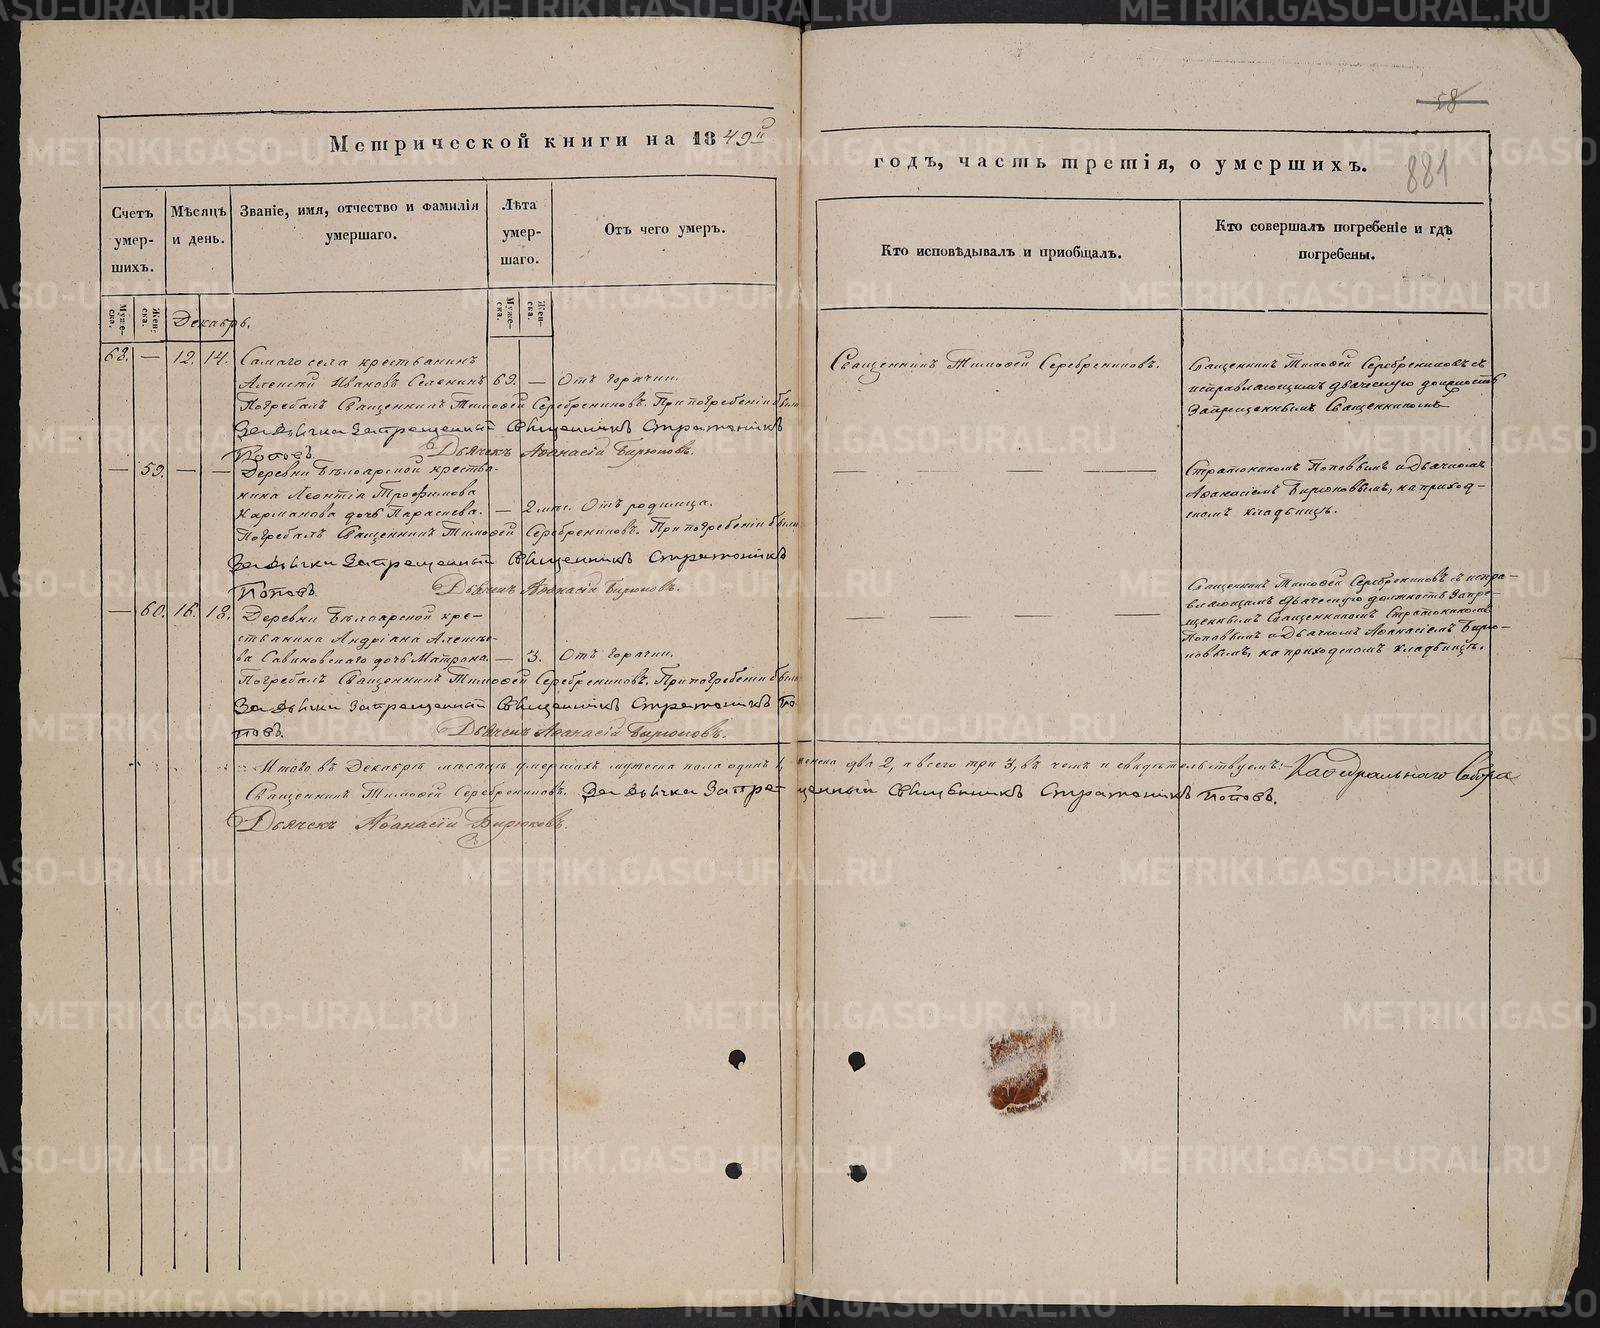 58
Метрической книги на 1849й
годъ, часть третія, о умершихъ.
881
Счетъ умер-шихъ.
Мѣсяцъ и день.
Званіе, имя, отчество и фамилія умершаго.
Лѣта умер-шаго.
Отъ чего умеръ.
Кто исповѣдывалъ и приобщалъ.
Кто совершалъ погребеніе и гдѣ погребены.
Муже-ска.
Жен-ска.
Декабрь.
Муже-ска.
Жен-ска.
68. — 12. 14. Самаго села крестьянинъ
Алексѣй Ивановъ 69. — Отъ горячки.
Погребалъ Священникъ Тимофей Серебрениковъ. При погребеніи были
За дьячка Запрещенный Священникъ Стратоникъ
Поповъ. Дьячекъ Афанасій Бирюковъ.
Священникъ Тимофей Серебрениковъ.
Священникъ Тимофей Серебрениковъ съ
исправляющимъ дьяческую должность
Запрещеннымъ Священникомъ
— 59. — — Деревни Бѣлоярской крестья-
нина Леонтія Трофимова
Карманова дочь Параскева. — 2 мѣс. Отъ родимца.
Погребалъ Священникъ Тимофей Серебрениковъ. При погребеніи были
За дьячка Запрещенный Священникъ Стратоникъ
Поповъ. Дьячекъ Афанасій Бирюковъ.
— — —
Стратоникомъ Поповымъ и Дьячкомъ
Афанасіемъ Бирюковымъ, на приход-
скомъ кладбищѣ.
— 60. 16. 18. Деревни Бѣлоярской кре-
стьянина Андріана Алексѣе-
ва Савиновскаго дочь Матрона. — 3. Отъ горячки.
Погребалъ Священникъ Тимофей Серебрениковъ. При погребеніи были
За дьячка Запрещенный Священникъ Стратоникъ По-
повъ. Дьячекъ Афанасій Бирюковъ.
— — —
Священникъ Тимофей Серебрениковъ съ испра-
вляющимъ дьяческую должность Запре-
щеннымъ Священникомъ Стратоникомъ
Поповымъ и Дьячкомъ Афанасіемъ Бирю-
ковымъ, на приходскомъ кладбищѣ.
Итого въ Декабрѣ мѣсяцѣ умершихъ мужеска пола одинъ 1, женска два 2, а всего три 3, въ чемъ и свидѣтельствуемъ: Кафедральнаго Собора
Священникъ Тимофей Серебрениковъ. За дьячка Запрещенный Священникъ Стратоникъ Поповъ.
Дьячекъ Афанасій Бирюковъ.
METRIKI.GASO-URAL.RU